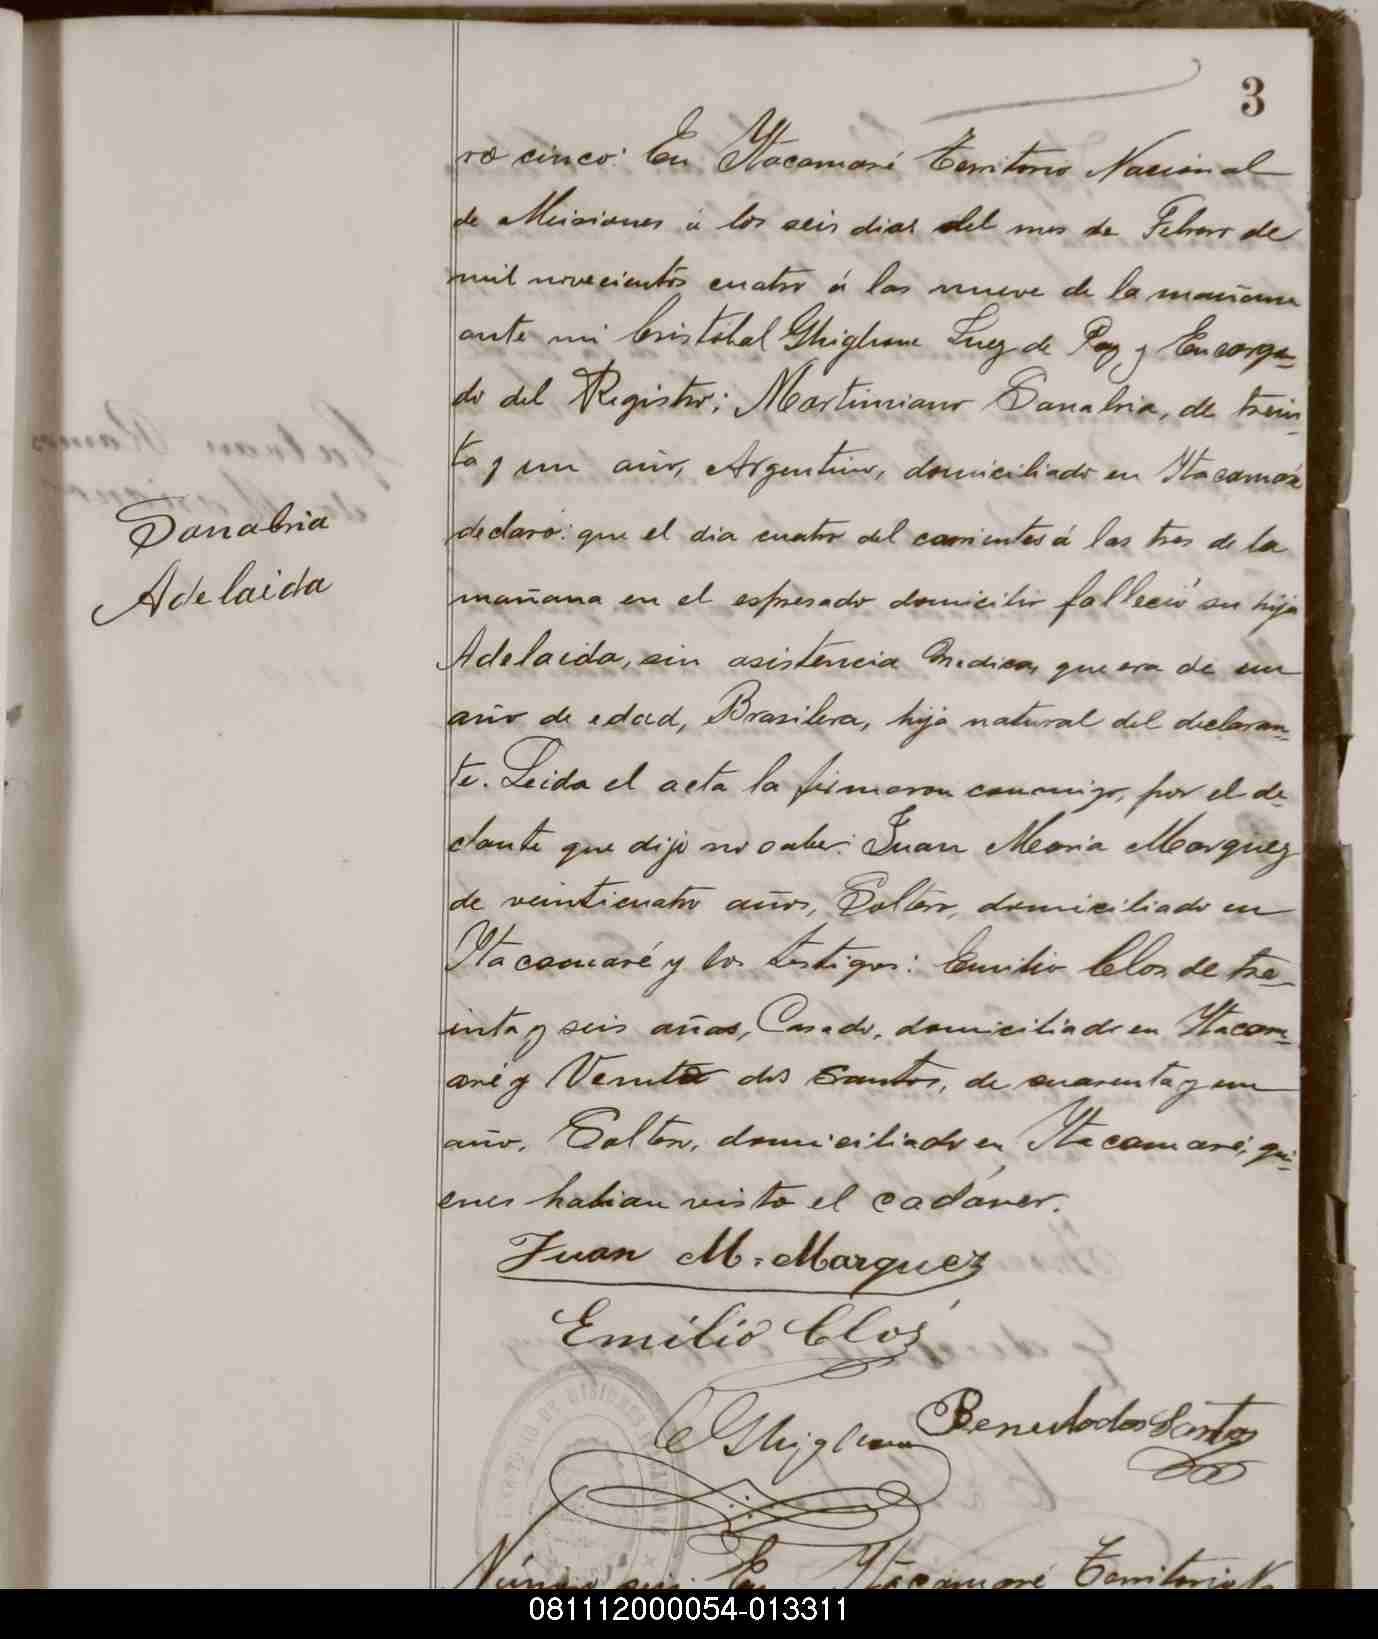 3
ro cinco: En Ytacamaré Territorio Nacional
de Misiones á los seis dias del mes de Febrero de
mil novecientos cuatro á las nueve de la mañana
ante mi Cristóbal Ghiglione Juez de Paz y Encarga-
do del Registro; Martimiano Sanabria, de trein-
ta y un año, Argentino, domiciliado en Ytacamaré
declaró: que el dia cuatro del corrientes á las tres de la
mañana en el espresado domicilio falleció su hija
Sanabria
Adelaida
Adelaida, sin asistencia medica, que era de un
año de edad, Brasilera, hija natural del declaran-
te. Leida el acta la firmaron conmigo, por el de-
clante que dijo no saber: Juan Maria Marquez
de veinticuatro años, Soltero, domiciliado en
Ytacamaré y los testigos: Emilio Clos de tre-
inta y seis años, Casado, domiciliado en Ytacam-
aré y Venuto dos Santos, de cuarenta y un
año, Soltero, domiciliado en Ytacamaré, qui-
enes habian visto el cadáver.
Juan M. Marquez
Emilio Clos
CGhiglione
Benutodos Santos
Número seis: En Ytacamaré Territorio N
081112000054-013311